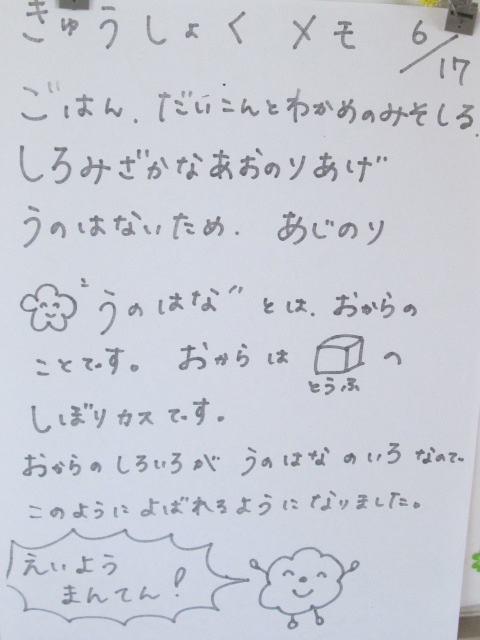 きゅうしょくメモ 6/17
ごはん、だいこんとわかめのみそしる、
しろみざかなあおのりあげ
うのはないため、 あじのり
"うのはな"とは、おからの
ことです。 おからは の
とうふ
しぼりカスです。
おからのしろいろが うのはなのいろなので
このようによばれるようになりました。
えいよう
まんてん!